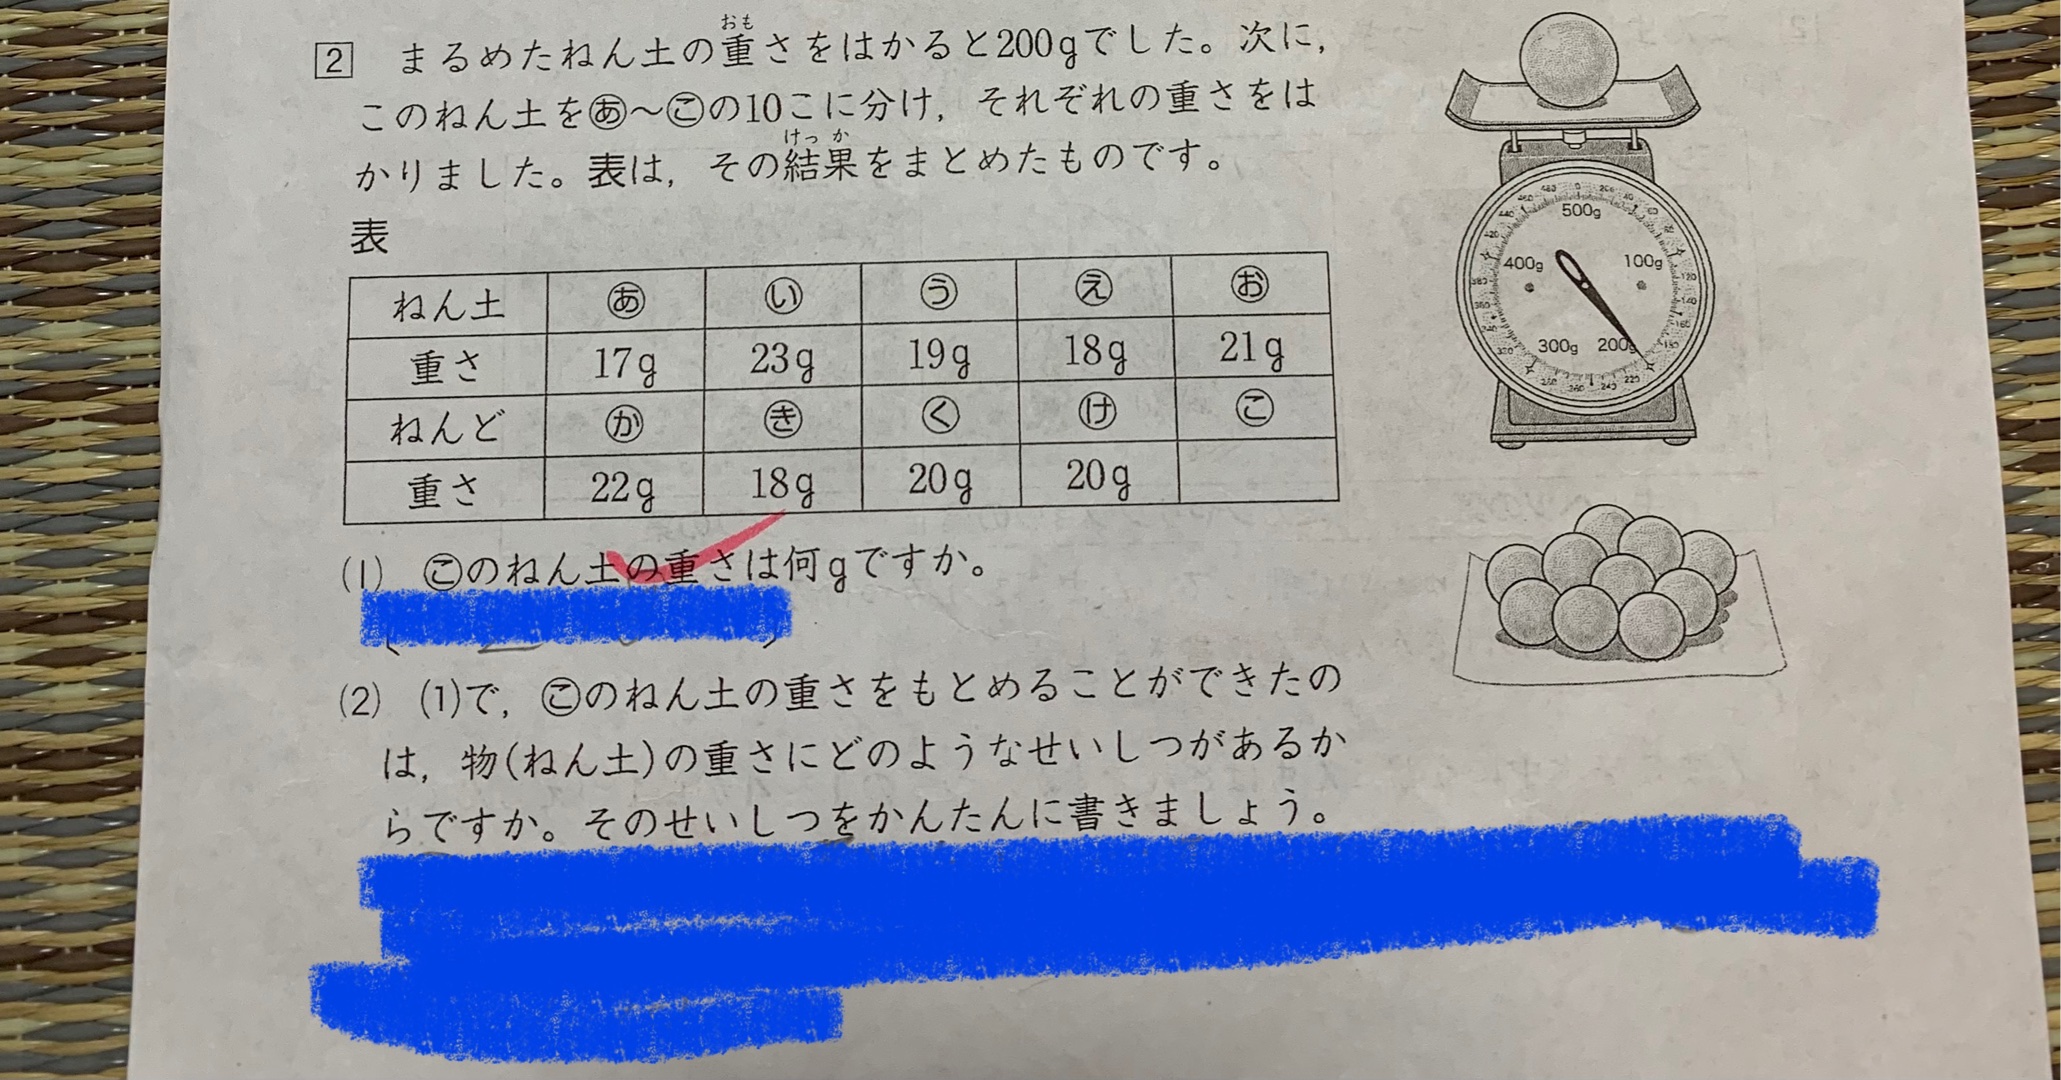 2 まるめたねん土の重さをはかると200gでした。次に,
おも
このねん土をあ～この10こに分け,それぞれの重さをは
かりました。表は,その結果をまとめたものです。
けっか
表
ねん土 あ い う え お
重さ 17g 23g 19g 18g 21g
ねんど か き く け こ
重さ 22g 18g 20g 20g
(1) このねん土の重さは何gですか。
(2) (1)で,このねん土の重さをもとめることができたの
は,物(ねん土)の重さにどのようなせいしつがあるか
らですか。そのせいしつをかんたんに書きましょう。
500g
400g 100g
300g 200g